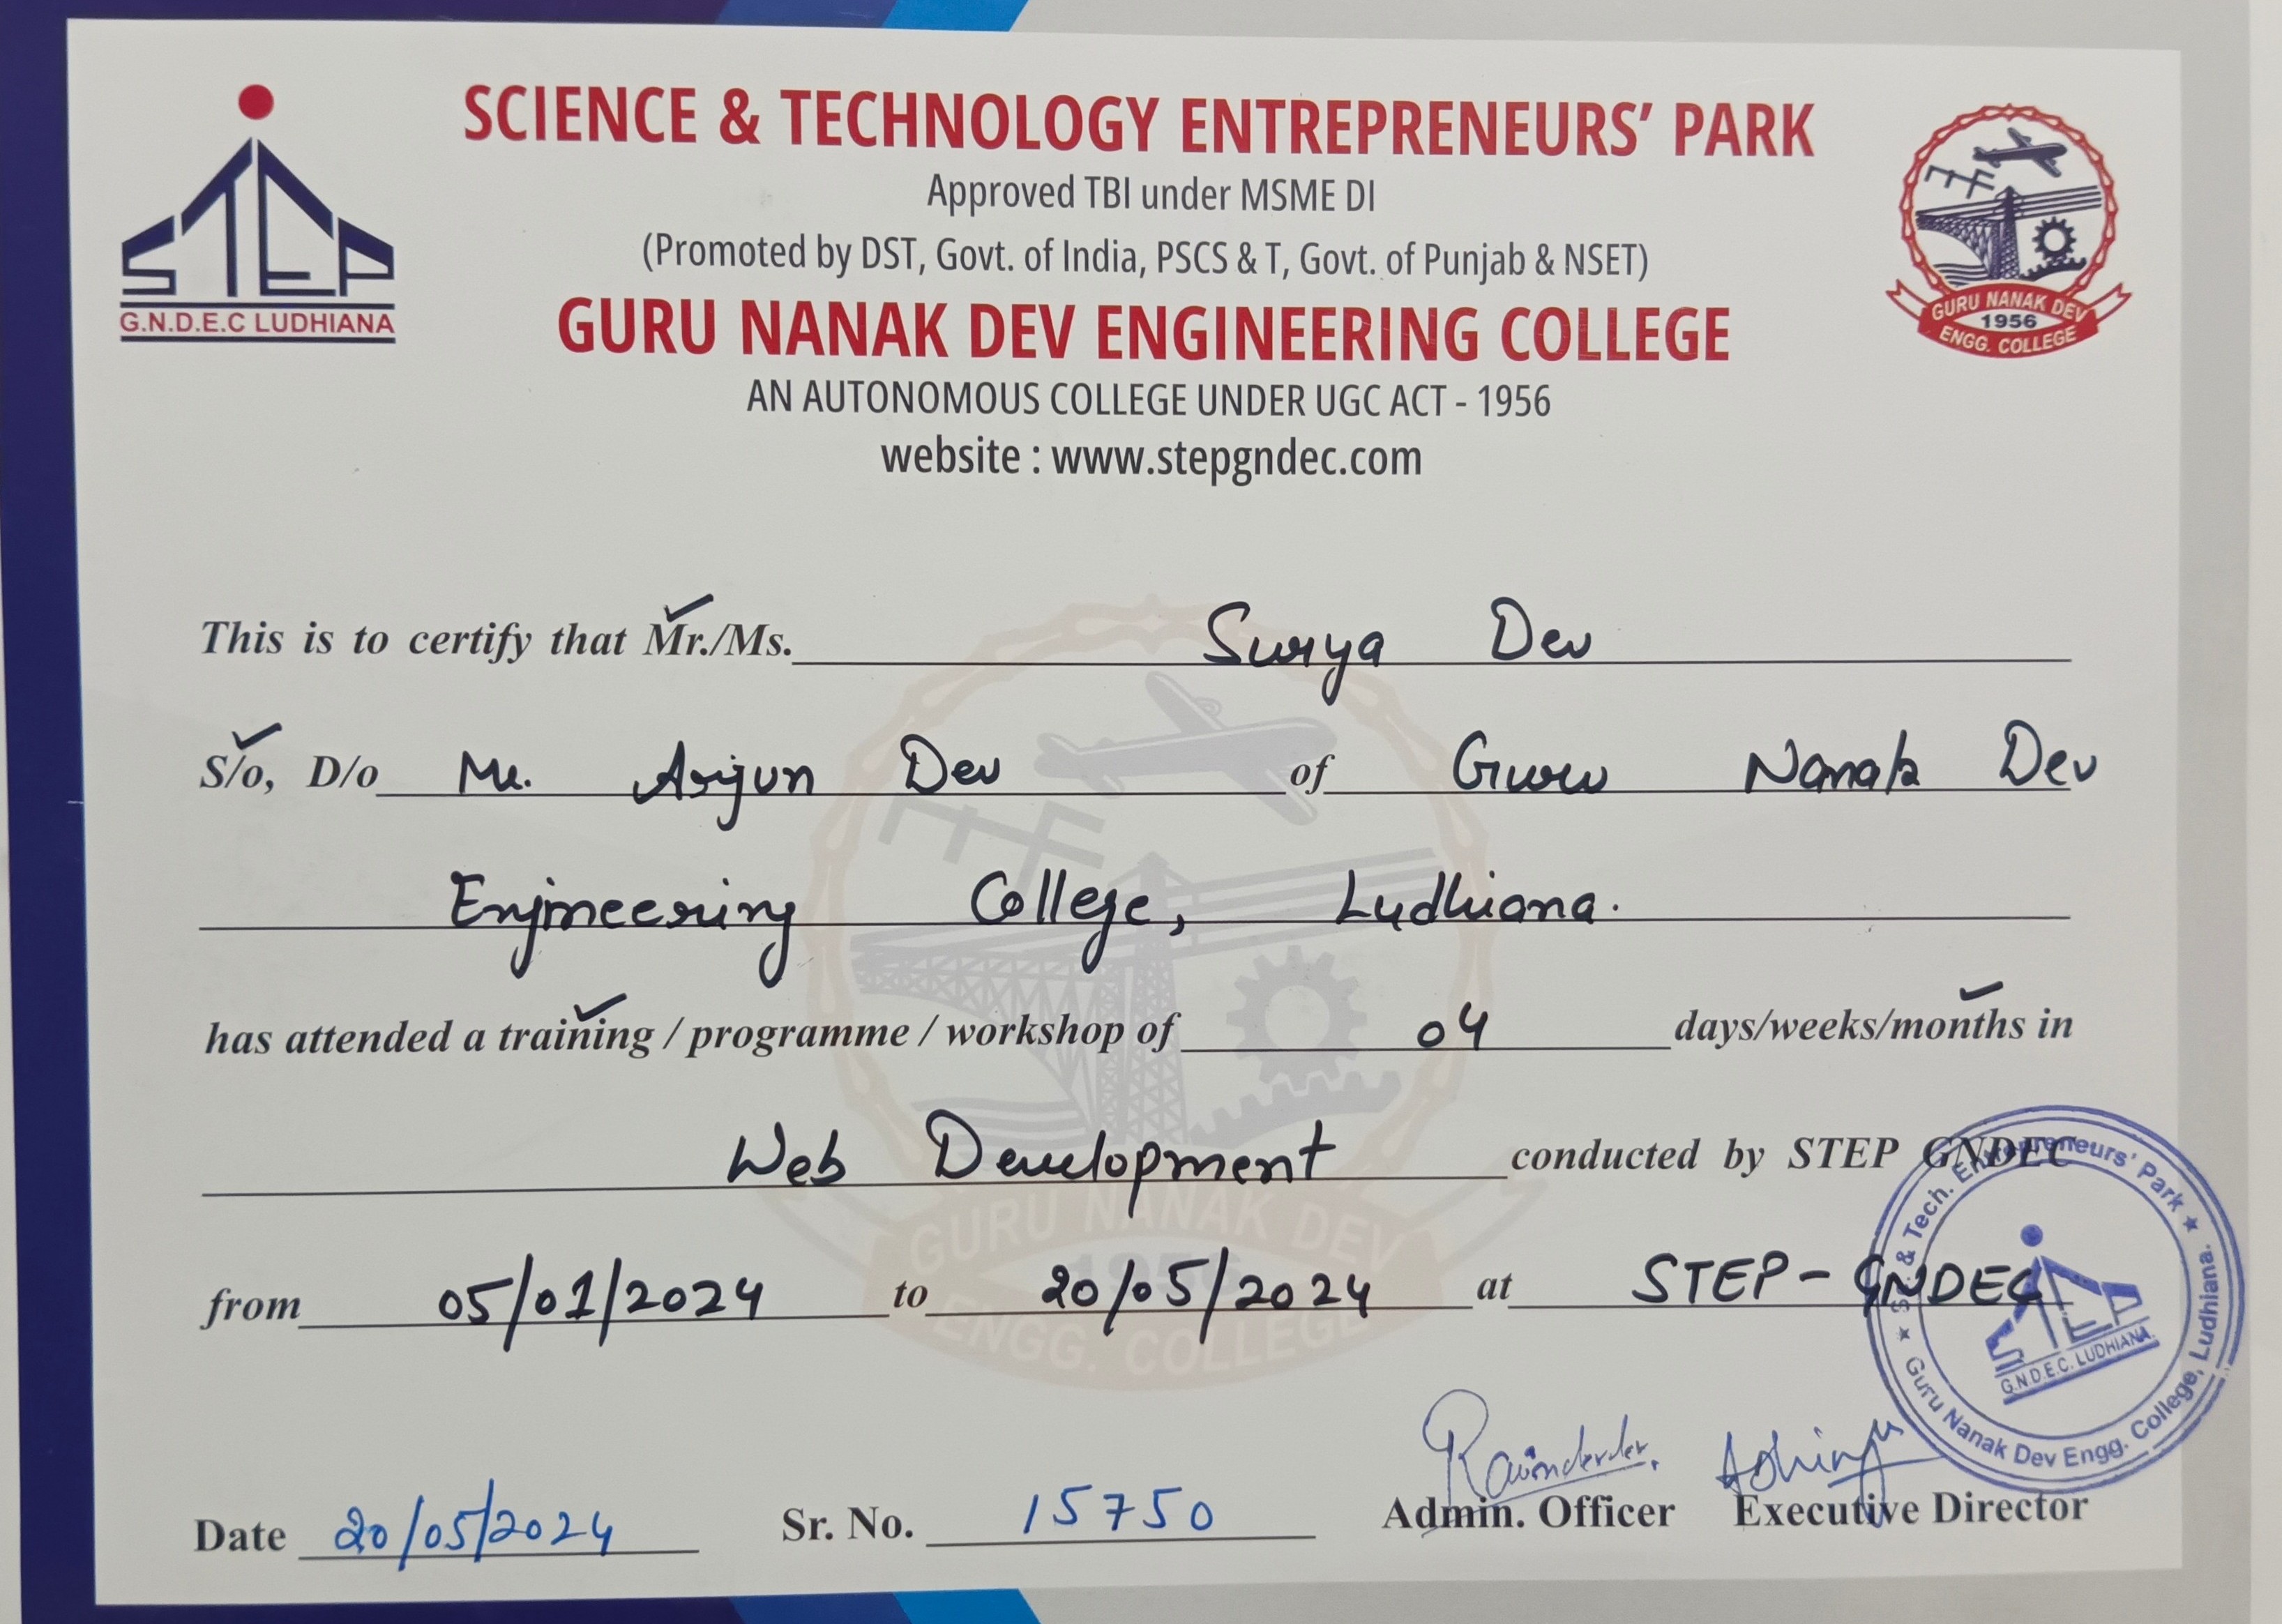 STEP
G.N.D.E.C LUDHIANA
SCIENCE & TECHNOLOGY ENTREPRENEURS' PARK
Approved TBI under MSME DI
(Promoted by DST, Govt. of India, PSCS & T, Govt. of Punjab & NSET)
GURU NANAK DEV ENGINEERING COLLEGE
AN AUTONOMOUS COLLEGE UNDER UGC ACT - 1956
website : www.stepgndec.com
GURU NANAK DEV
1956
ENGG. COLLEGE
This is to certify that Mr./Ms. Surya Dev
S/o, D/o Mr. Arjun Dev of Guru Nanak Dev
Engineering College, Ludhiana.
has attended a training / programme / workshop of 04 days/weeks/months in
Web Development conducted by STEP GNDEC
from 05/01/2024 to 20/05/2024 at STEP-GNDEC
GURU NANAK DEV
1956
ENGG. COLLEGE
Sc. & Tech. Entrepreneurs' Park
STEP
G.N.D.E.C. LUDHIANA.
Guru Nanak Dev Engg. College, Ludhiana.
Date 20/05/2024 Sr. No. 15750 Admin. Officer Executive Director